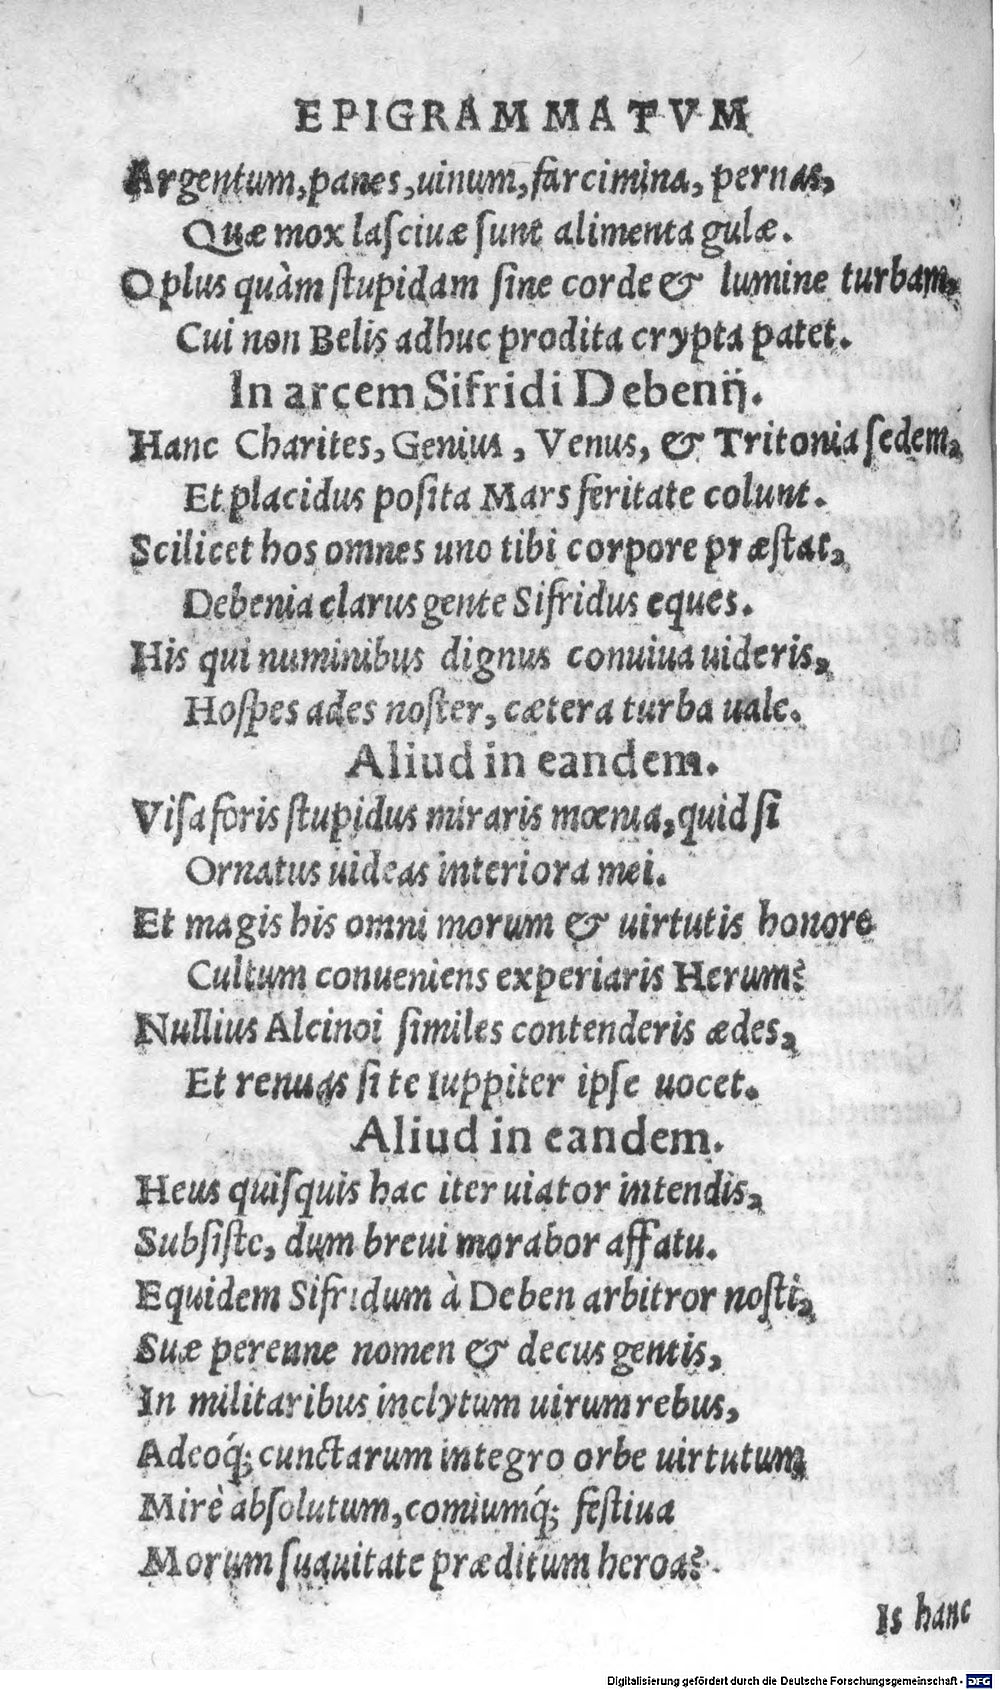 EPIGRAMMATVM
Argentum, panes, uinum, farcimina, pernas,
Quæ mox laſciuæ ſunt alimenta gulæ.
O plus quàm ſtupidam ſine corde & lumine turbam,
Cui non Belis adhuc prodita crypta patet.
In arcem Sifridi Debenij.
Hanc Charites, Genius, Venus, & Tritonia ſedem,
Et placidus poſita Mars feritate colunt.
Scilicet hos omnes uno tibi corpore præſtat,
Debenia clarus gente Sifridus eques.
His qui numinibus dignus conuiua uideris,
Hoſpes ades noſter, cætera turba uale.
Aliud in eandem.
Viſa foris ſtupidus miraris mœnia, quid ſi
Ornatus uideas interiora mei.
Et magis his omni morum & uirtutis honore
Cultum conueniens experiaris Herum?
Nullius Alcinoi ſimiles contenderis ædes,
Et renuas ſi te Iuppiter ipſe uocet.
Aliud in eandem.
Heus quiſquis hac iter uiator intendis,
Subſiſte, dum breui morabor affatu.
Equidem Sifridum à Deben arbitror noſti,
Suæ perenne nomen & decus gentis,
In militaribus inclytum uirum rebus,
Adeoq́; cunctarum integro orbe uirtutum
Mirè abſolutum, comiumq́; feſtiua
Morum ſuauitate præditum heroa?
Is hanc
Digitalisierung gefördert durch die Deutsche Forschungsgemeinschaft - DFG